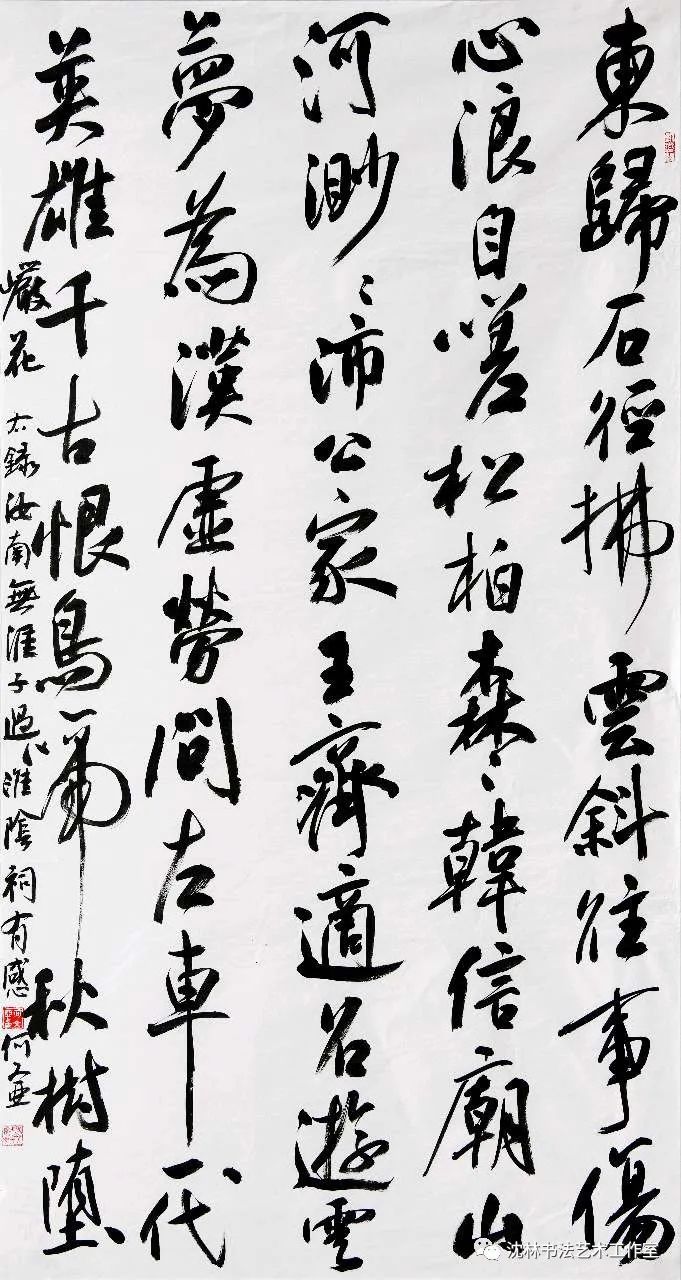 東歸石徑拂雲斜往事傷
心浪自嗟松柏森〻韓信廟山
河渺〻沛公家王齊適召遊雲
夢為漢虛勞問左車一代
英雄千古恨鳥啼秋樹墮
巖花 右錄汝南無涯子過淮陰祠有感
沈林书法艺术工作室